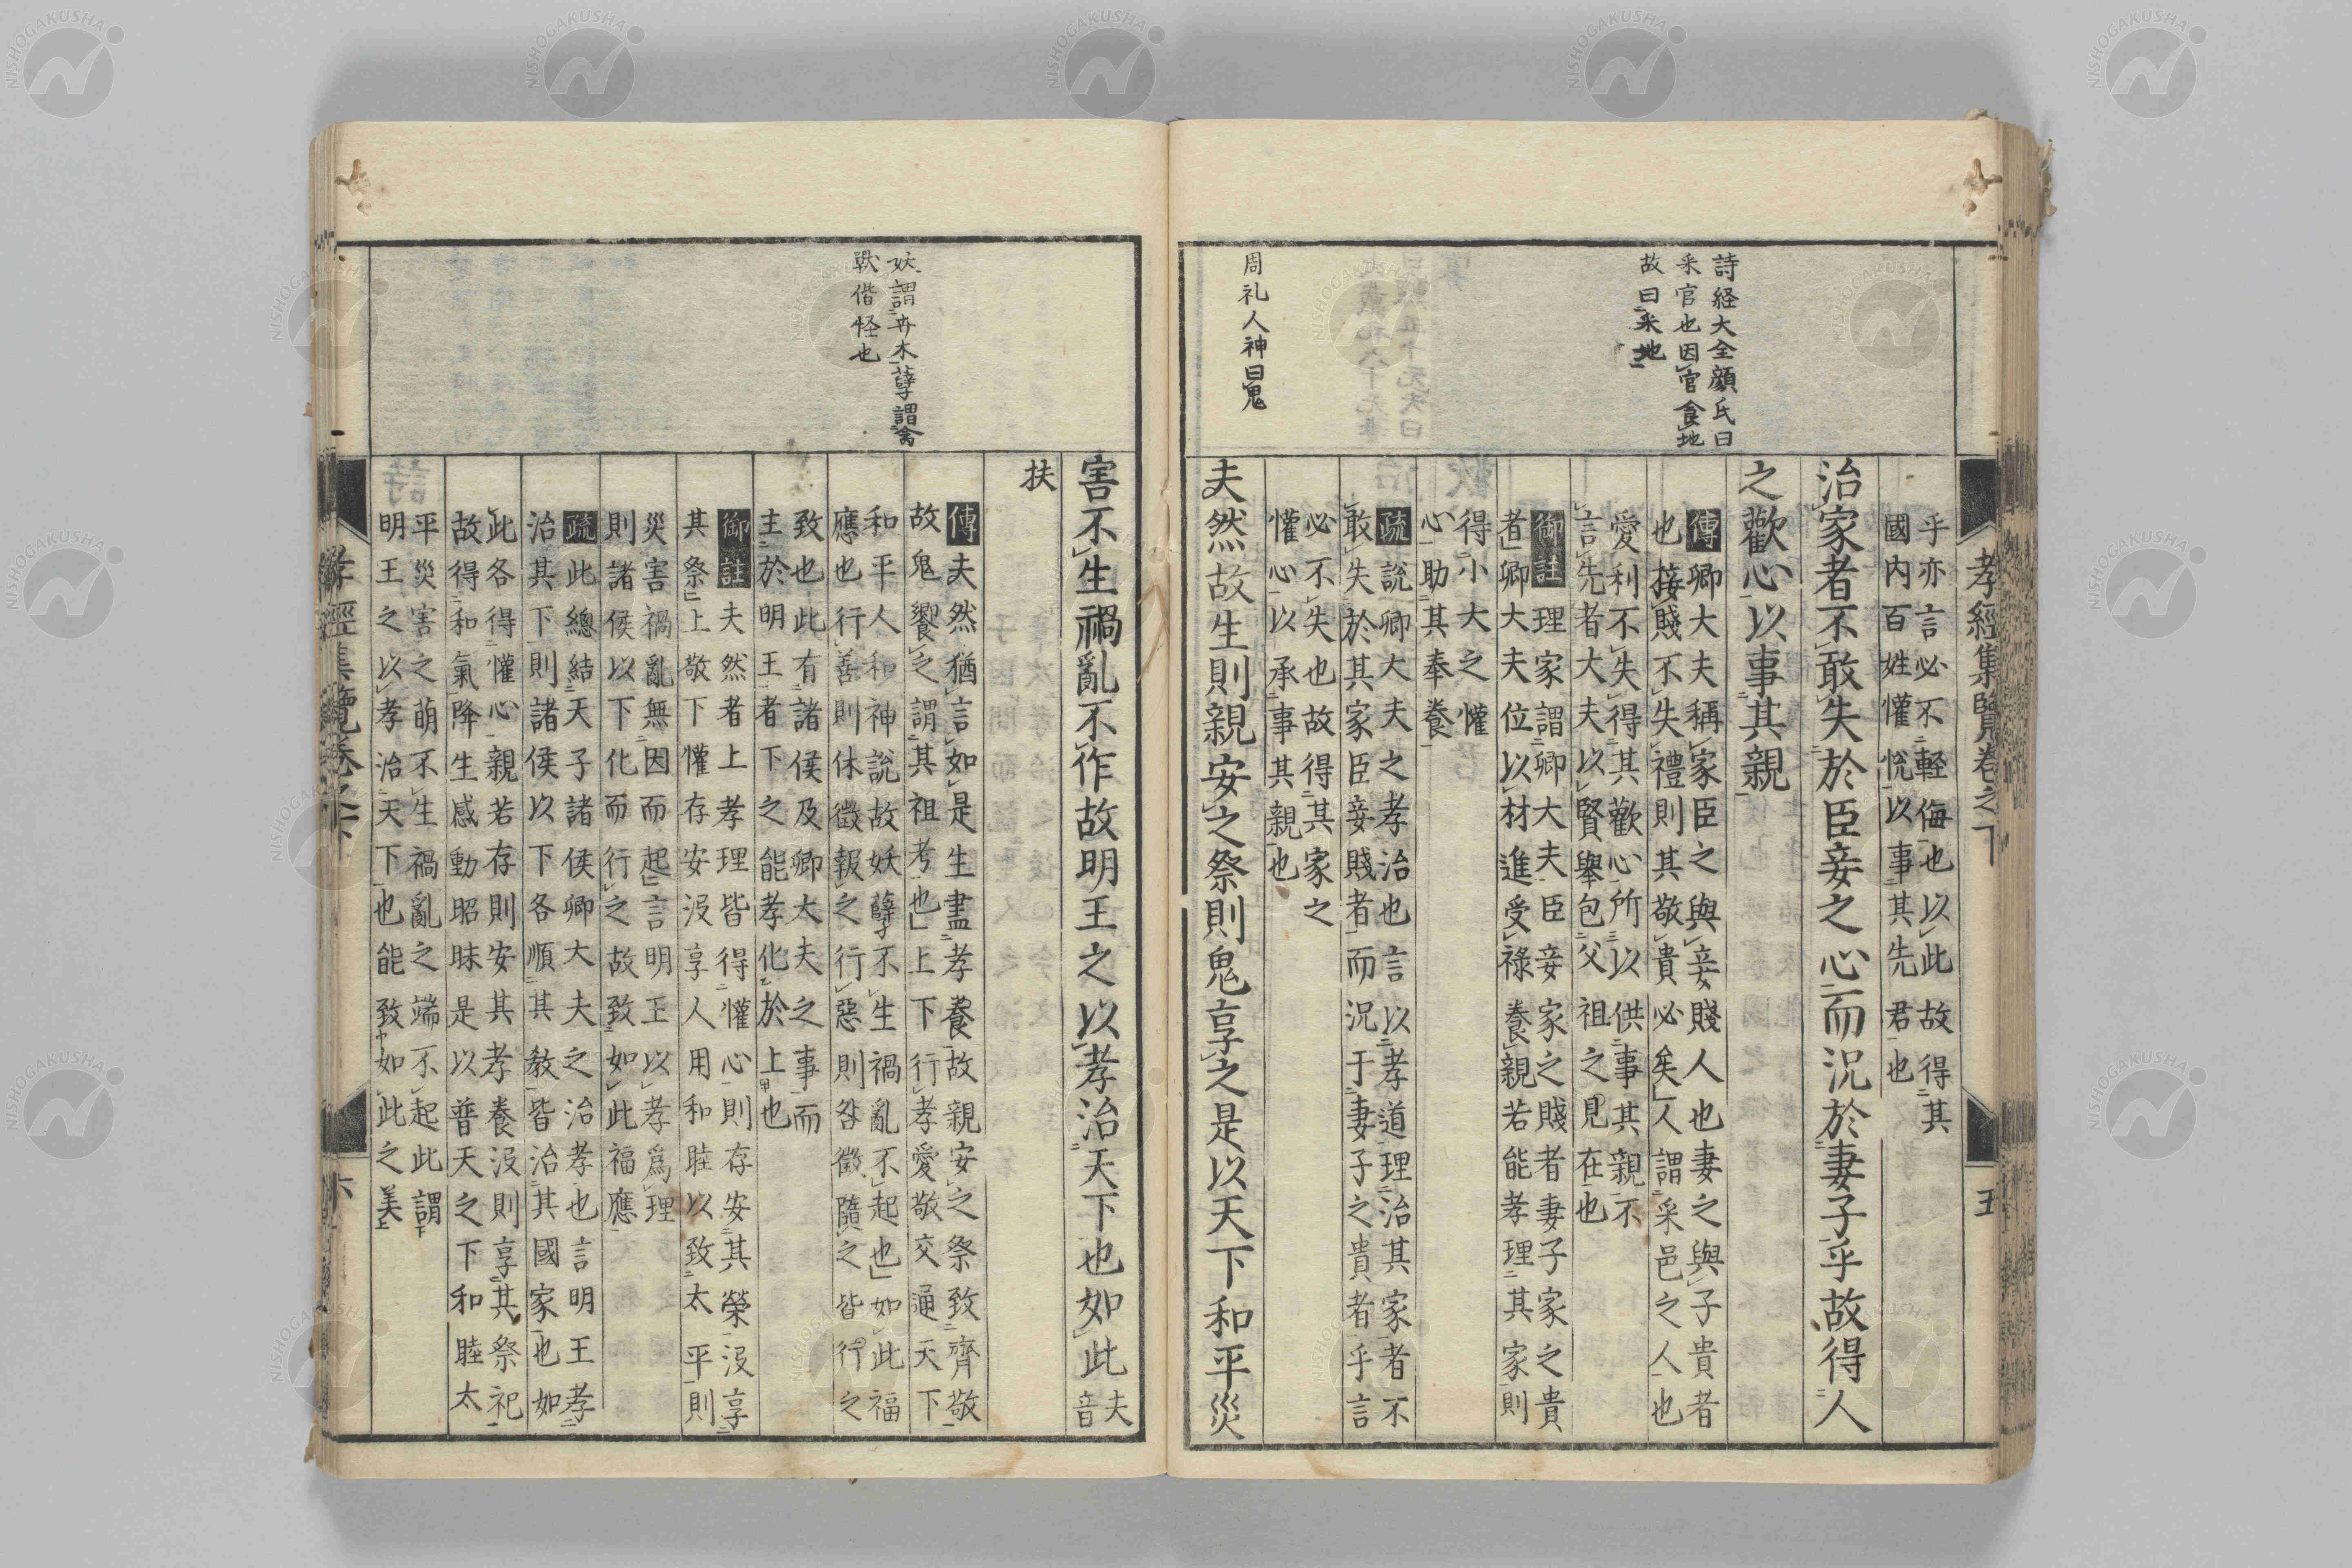 孝經集覽卷之下
五
詩経大全顔氏曰
采官也因官食地
故曰采地
周礼人神曰鬼
乎亦言必不輕侮也以此故得其
國内百姓懽悦以事其先君也
治家者不敢失於臣妾之心而況於妻子乎故得人
之歡心以事其親
傳卿大夫稱家臣之與妾賤人也妻之與子貴者
也接賤不失禮則其敬貴必矣人謂采邑之人也
愛利不失得其歡心所以供事其親不
言先者大夫以賢舉包父祖之見在也
御註理家謂卿大夫臣妾家之賤者妻子家之貴
者卿大夫位以材進受祿養親若能孝理其家則
得小大之懽
心助其奉養
疏説卿大夫之孝治也言以孝道理治其家者不
敢失於其家臣妾賤者而況于妻子之貴者乎言
必不失也故得其家之
懽心以承事其親也
夫然故生則親安之祭則鬼享之是以天下和平災
妖謂卉木孽謂禽
獸偕怪也
害不生禍亂不作故明王之以孝治天下也如此夫
音
扶
傳夫然猶言如是生盡孝養故親安之祭致齊敬
故鬼饗之謂其祖考也上下行孝愛敬交通天下
和平人和神説故妖孽不生禍亂不起也如此福
應也行善則休徵報之行惡則咎徵隨之皆行之
致也此有諸侯及卿大夫之事而
主於明王者下之能孝化於上也
御註夫然者上孝理皆得懽心則存安其榮沒享
其祭上敬下懽存安沒享人用和睦以致太平則
災害禍亂無因而起言明王以孝爲理
則諸侯以下化而行之故致如此福應
疏此總結天子諸侯卿大夫之治孝也言明王孝
治其下則諸侯以下各順其教皆治其國家也如
此各得懽心親若存則安其孝養沒則享其祭祀
故得和氣降生感動昭昧是以普天之下和睦太
平災害之萌不生禍亂之端不起此謂
明王之以孝治天下也能致如此之美
孝經集覽卷之下
六